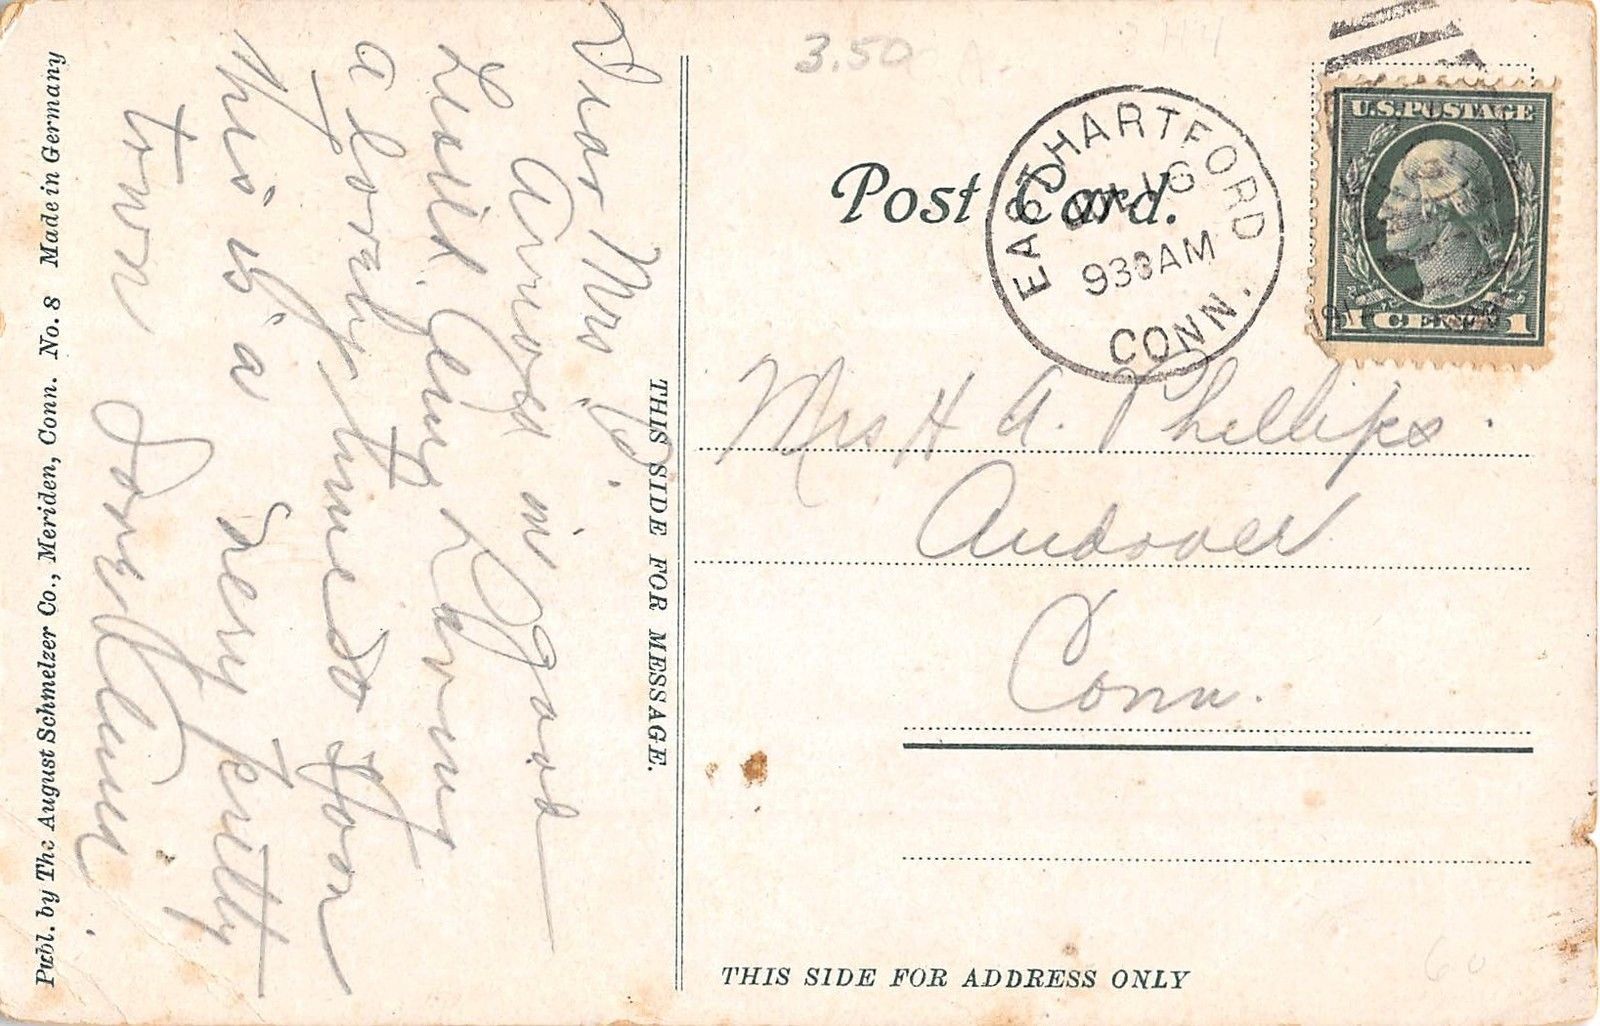 3.50
Post Card.
EAST HARTFORD
930AM
CONN.
U.S.POSTAGE
1 CENT 1
Dear Mrs P.
Arrived in good
a lovely time so soon
This is a very pretty
town
THIS SIDE FOR MESSAGE.
Mrs H A. Phillips.
Andover
Conn.
THIS SIDE FOR ADDRESS ONLY
Publ. by The August Schmelzer Co., Meriden, Conn. No. 8 Made in Germany
60